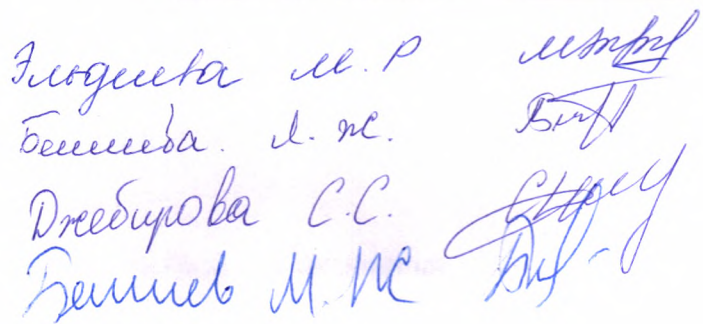 Эльдиева М. Р
Бешиева. Л. Ж.
Джебирова С. С.
Бешиев М. Ж